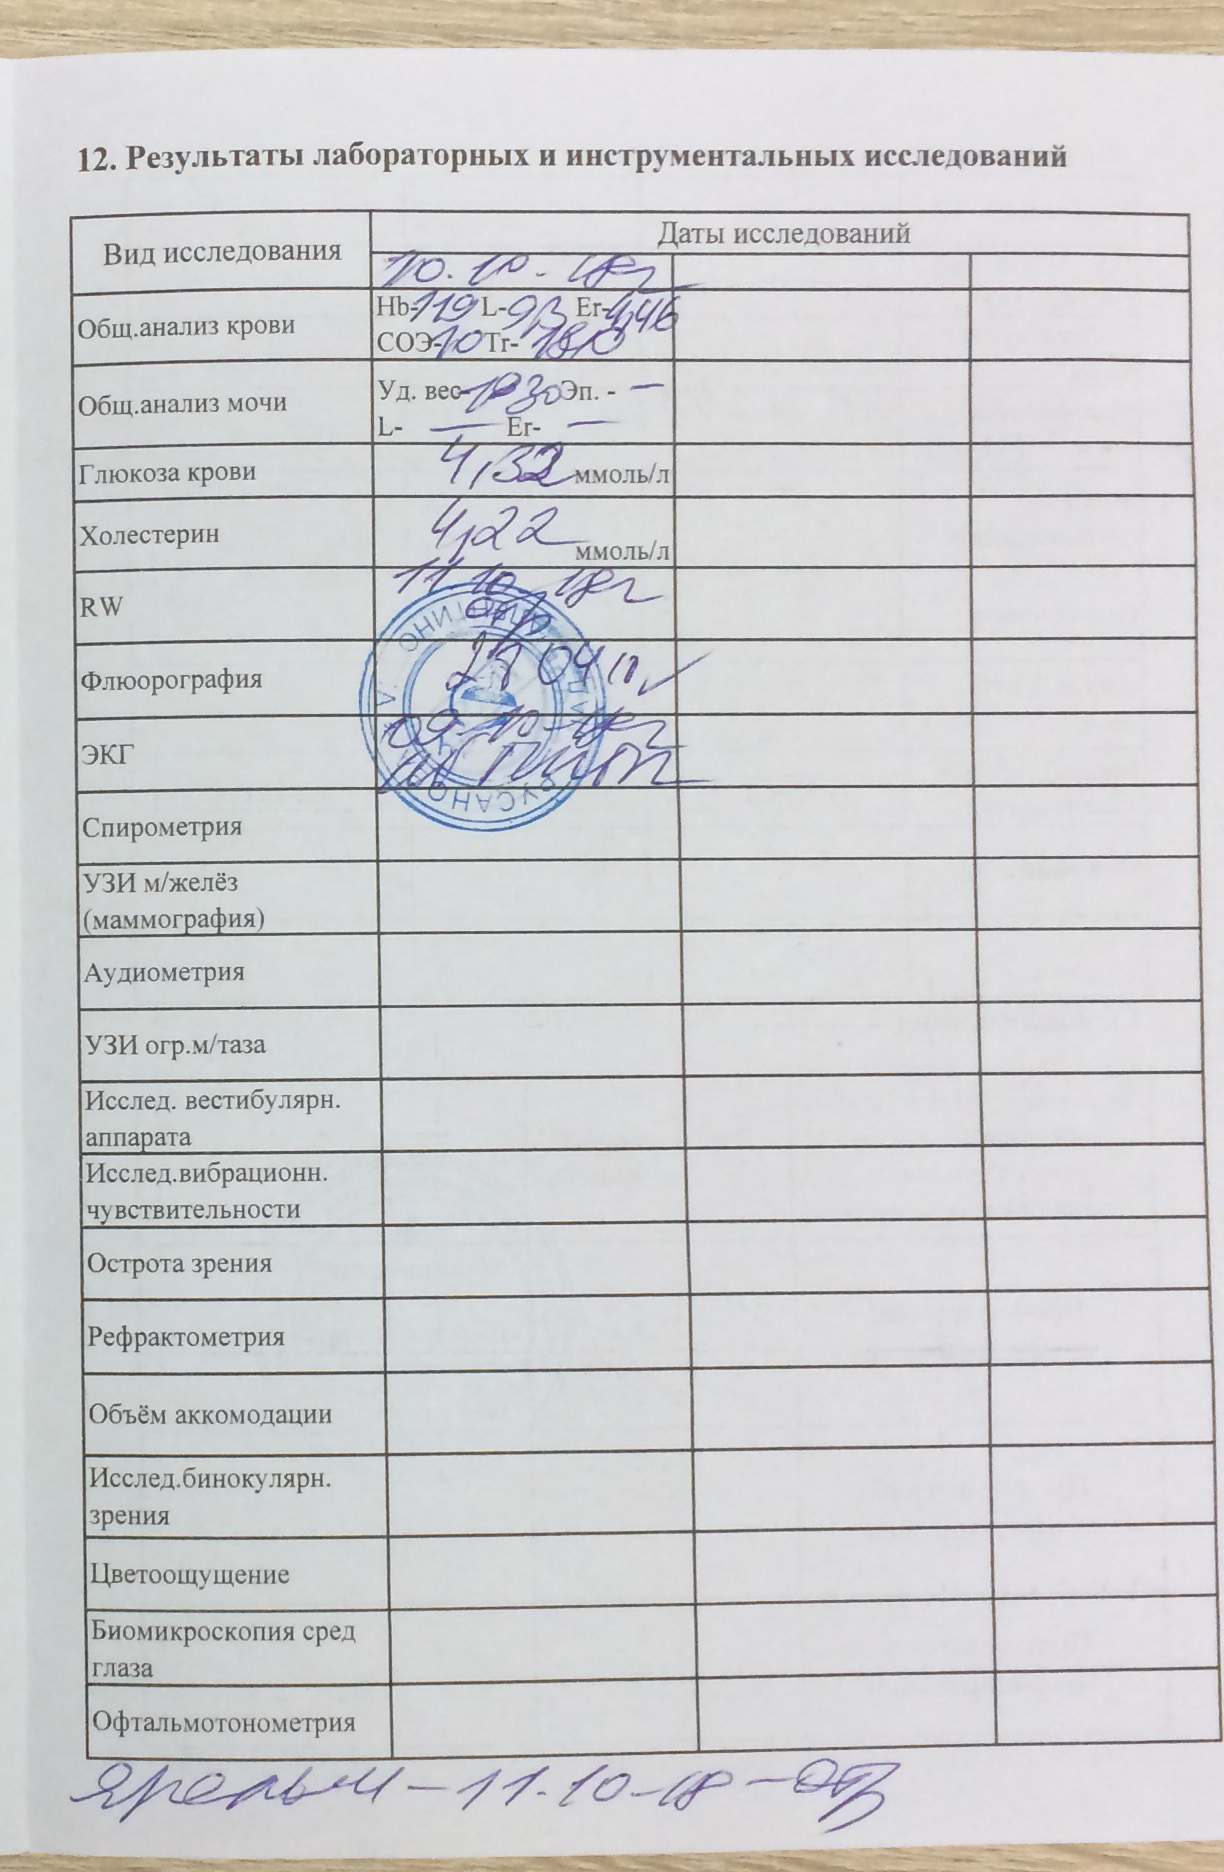 12. Результаты лабораторных и инструментальных исследований
Вид исследования
Даты исследований
10.10-18г
Общ.анализ крови
Hb-119 L-9,3 Er-4,46
СОЭ-10 Tr-180
Общ.анализ мочи
Уд. вес-1030 Эп. - —
L- — Er- —
Глюкоза крови
4,32 ммоль/л
Холестерин
4,22
ммоль/л
RW
11.10.18г
отр
Флюорография
ЭКГ
09-10-18г
Спирометрия
УЗИ м/желёз
(маммография)
Аудиометрия
УЗИ огр.м/таза
Исслед. вестибулярн.
аппарата
Исслед.вибрационн.
чувствительности
Острота зрения
Рефрактометрия
Объём аккомодации
Исслед.бинокулярн.
зрения
Цветоощущение
Биомикроскопия сред
глаза
Офтальмотонометрия
-11.10-18-отр